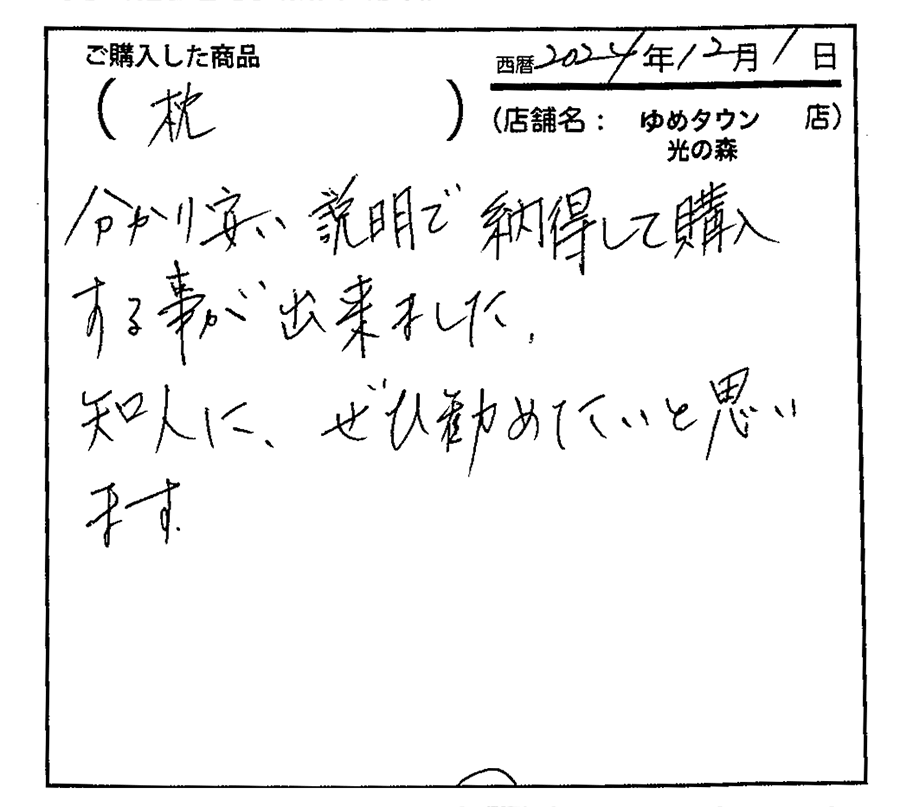 ご購入した商品
西暦2024年12月1日
(枕)
(店舗名： ゆめタウン 店)
光の森
分かり安い説明で納得して購入
する事が出来ました。
知人に、ぜひ勧めたいと思い
ます。